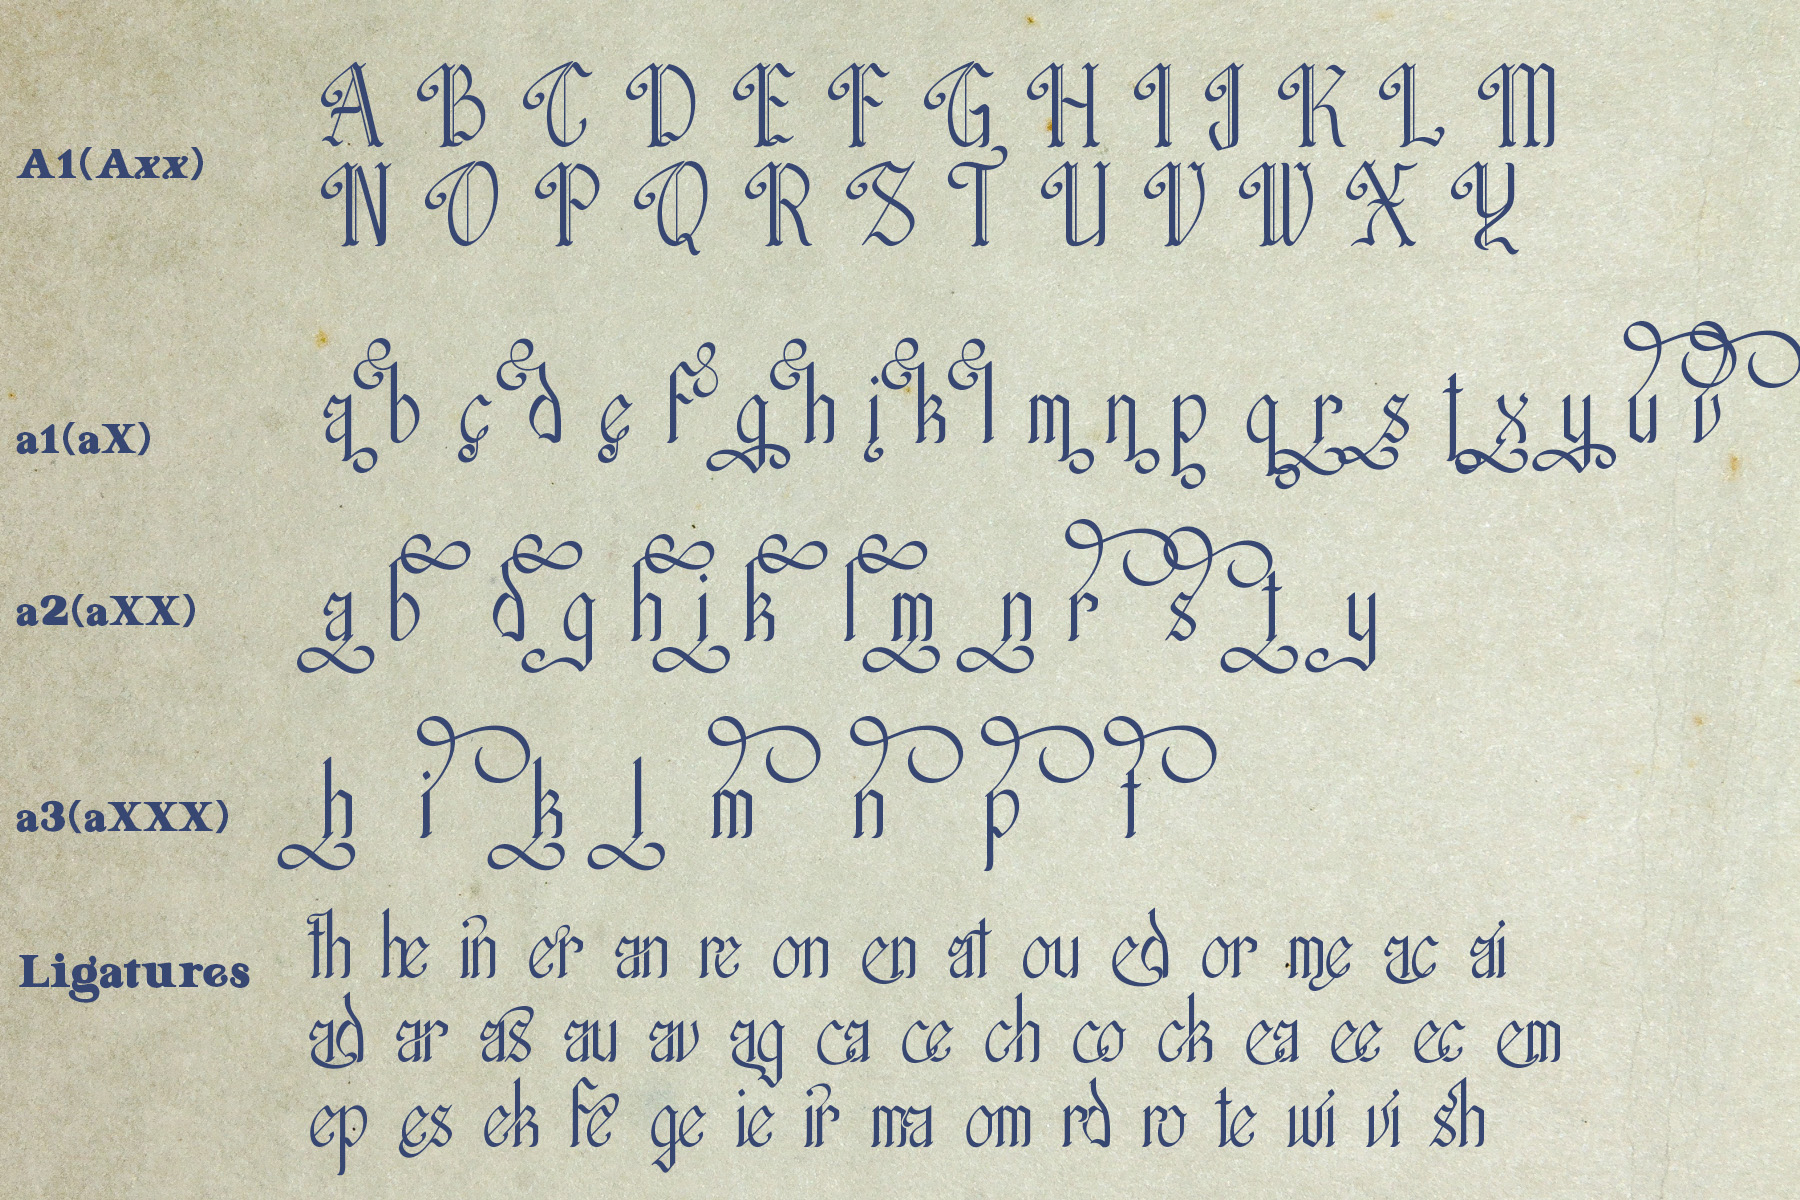 A B C D E F G H I J K L M
A1(Axx)
N O P Q R S T U V W X Y
a1(aX) a b c d e f g h i k l m n p q r s t x y u v
a2(aXX) a b d g h i k l m n r s t y
a3(aXXX) h i k l m n p t
Ligatures th he in er an re on en at ou ed or me ac ai
ad ar as au av ag ca ce ch co ck ea ee ec em
ep es ek fe ge ie ir ma om rd ro te wi vi sh